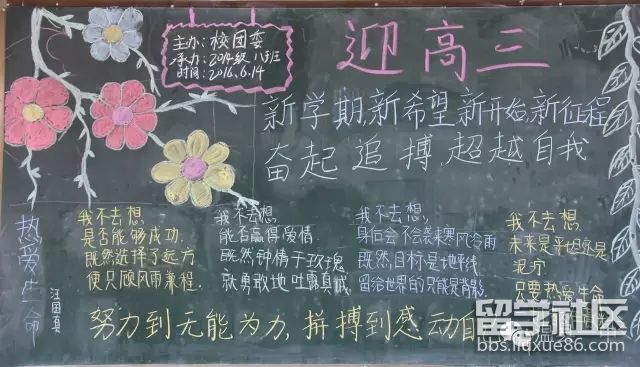 主办:校团委
承办:2014级.八班
时间:2016.6.14
迎高三
新学期,新希望,新开始,新征程
奋起追搏,超越自我
热爱生命
汪国真
我不去想,
是否能够成功,
既然选择了远方,
便只顾风雨兼程.
我不去想,
能否赢得爱情
既然钟情于玫瑰,
就勇敢地吐露真诚
我不去想,
身后会不会袭来寒风冷雨
既然目标是地平线
留给世界的只能是背影
我不去想,
未来是平坦还是
泥泞
只要热爱生命
努力到无能为力,拼搏到感动自
留学社区
bbs.liuxue86.com